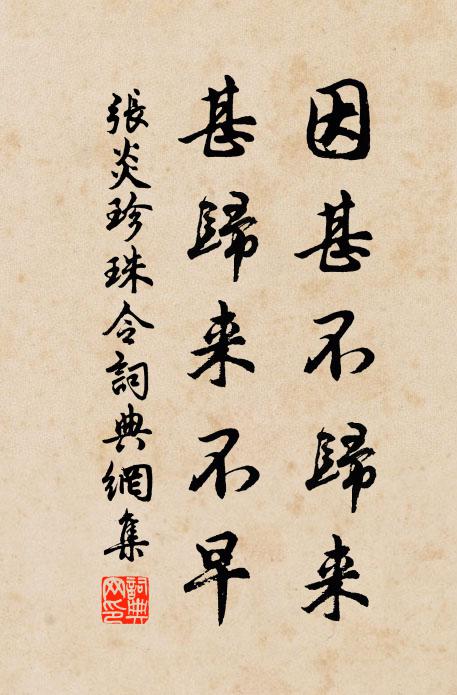 因甚不歸来
甚歸来不早
張炎珍珠令詞典網集
詞典
网印